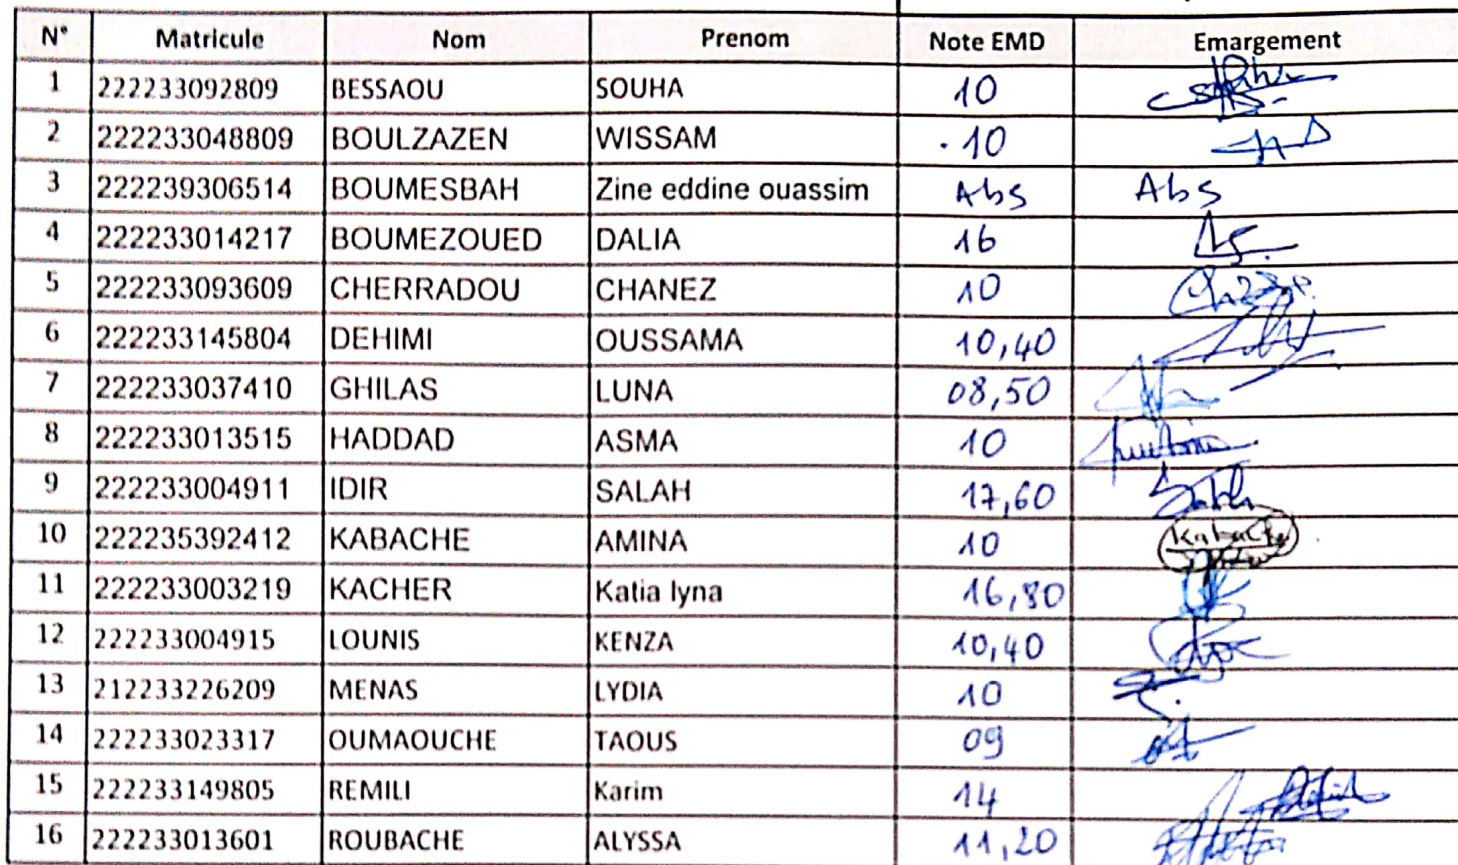 N° Matricule Nom Prenom Note EMD Emargement
1 222233092809 BESSAOU SOUHA 10
2 222233048809 BOULZAZEN WISSAM . 10
3 222239306514 BOUMESBAH Zine eddine ouassim Abs Abs
4 222233014217 BOUMEZOUED DALIA 16
5 222233093609 CHERRADOU CHANEZ 10
6 222233145804 DEHIMI OUSSAMA 10,40
7 222233037410 GHILAS LUNA 08,50
8 222233013515 HADDAD ASMA 10
9 222233004911 IDIR SALAH 17,60
10 222235392412 KABACHE AMINA 10 Kabache
11 222233003219 KACHER Katia lyna 16,80
12 222233004915 LOUNIS KENZA 10,40
13 212233226209 MENAS LYDIA 10
14 222233023317 OUMAOUCHE TAOUS 09
15 222233149805 REMILI Karim 14
16 222233013601 ROUBACHE ALYSSA 11,20